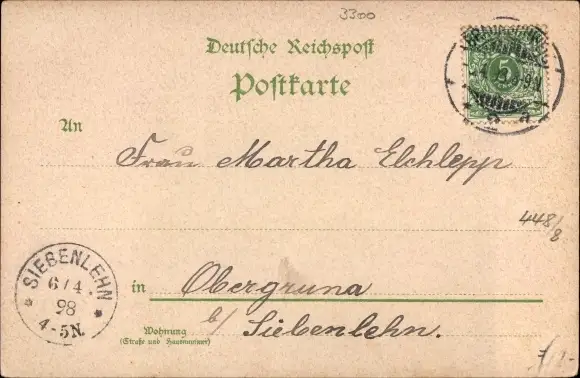 3300
Deutsche Reichspost
Postkarte
An
5
Frau Martha Elchlepp
448/8
SIEBENLEHN
6/4
98
4-5N.
in Obergruna
b/ Siebenlehn.
Wohnung
(Straße und Hausnummer)